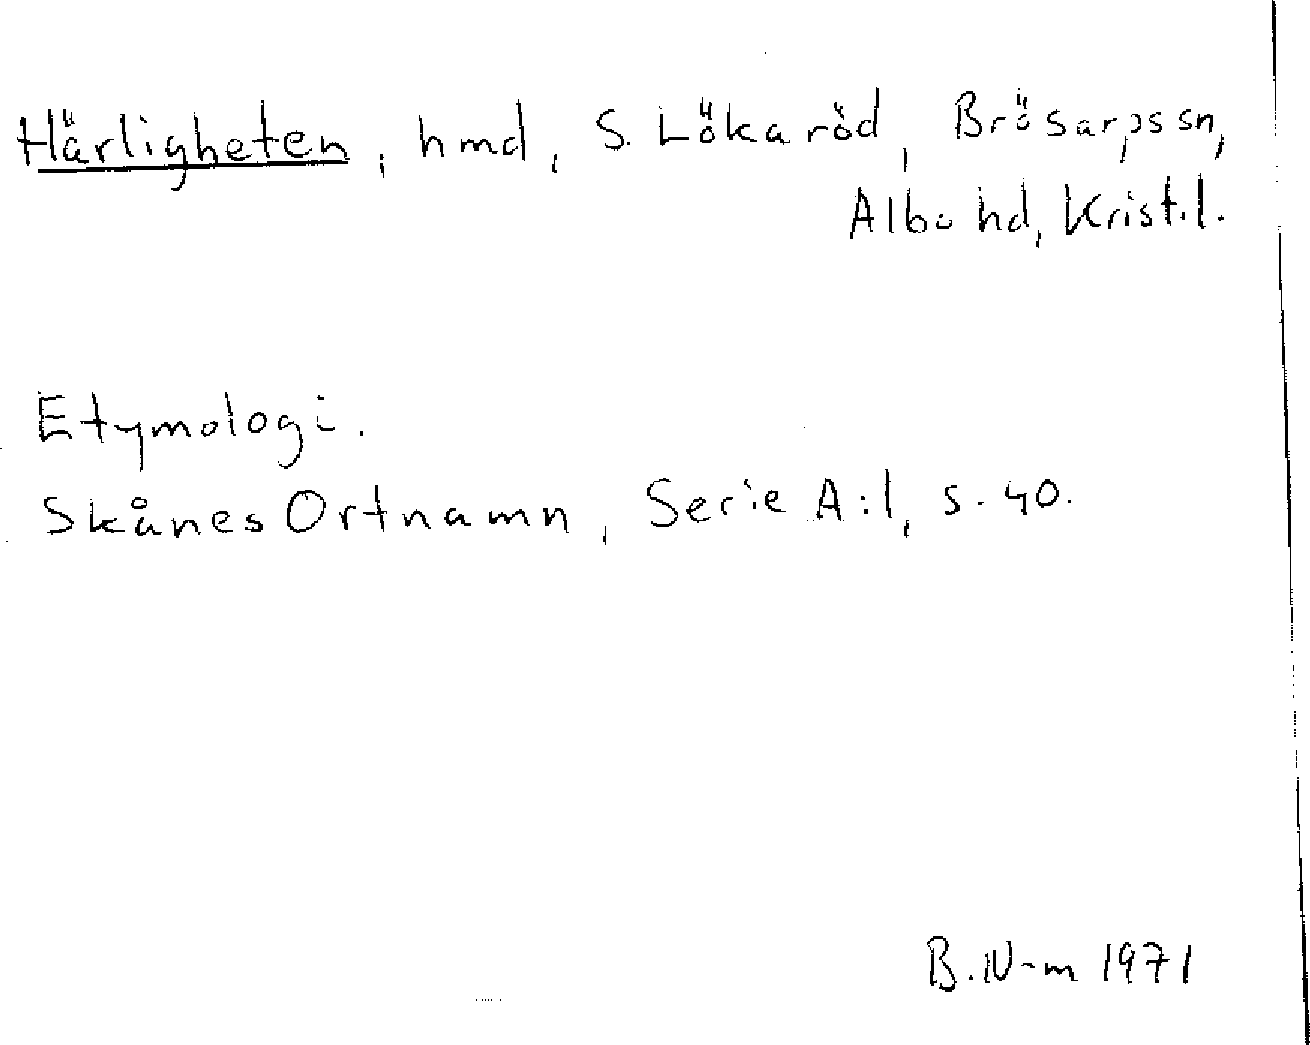 Härligheten, hmd, S. Lökaröd, Brösarps sn,
Albo hd, Krist.l.
Etymologi.
Skånes Ortnamn, Serie A:1, s. 40.
B. N-m 1971